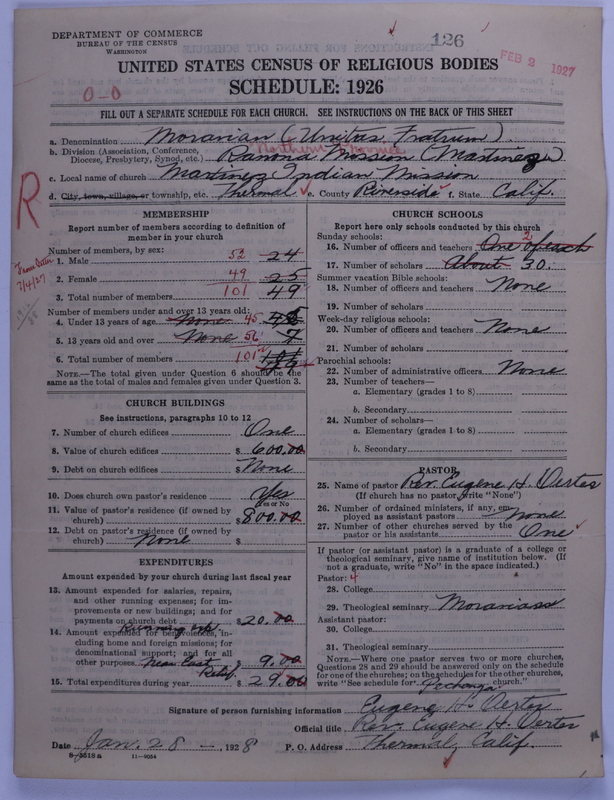 DEPARTMENT OF COMMERCE
BUREAU OF THE CENSUS
WASHINGTON
126
FEB 2 1927
UNITED STATES CENSUS OF RELIGIOUS BODIES
SCHEDULE: 1926
0-0
FILL OUT A SEPARATE SCHEDULE FOR EACH CHURCH. SEE INSTRUCTIONS ON THE BACK OF THIS SHEET
a. Denomination Moravian (Unitas Fratrum)
Northern Province
b. Division (Association, Conference, Diocese, Presbytery, Synod, etc.) Ramona Mission (Martinez)
c. Local name of church Martinez Indian Mission
d. City, town, village, or township, etc. Thermal e. County Riverside f. State Calif.
R
MEMBERSHIP
Report number of members according to definition of
member in your church
Number of members, by sex:
1. Male 52 24
2. Female 49 25
3. Total number of members 101 49
7/4/27
Number of members under and over 13 years old:
4. Under 13 years of age None 45
5. 13 years old and over None 56 7
6. Total number of members 101
NOTE.—The total given under Question 6 should be the
same as the total of males and females given under Question 3.
CHURCH BUILDINGS
See instructions, paragraphs 10 to 12
7. Number of church edifices One
8. Value of church edifices $ 600.00
9. Debt on church edifices $ None
10. Does church own pastor's residence Yes
Yes or No
11. Value of pastor's residence (if owned by
church) $ 800.00
12. Debt on pastor's residence (if owned by
church) None $
EXPENDITURES
Amount expended by your church during last fiscal year
13. Amount expended for salaries, repairs,
and other running expenses; for im-
provements or new buildings; and for
payments on church debt $ 20.00
Running exp.
14. Amount expended for benevolences, in-
cluding home and foreign missions; for
denominational support; and for all
other purposes Near East Relief. $ 9.00
15. Total expenditures during year $ 29.00
CHURCH SCHOOLS
Report here only schools conducted by this church
Sunday schools:
16. Number of officers and teachers One of each 2
17. Number of scholars About 30.
Summer vacation Bible schools:
18. Number of officers and teachers None
19. Number of scholars
Week-day religious schools:
20. Number of officers and teachers None
21. Number of scholars
Parochial schools:
22. Number of administrative officers None
23. Number of teachers—
a. Elementary (grades 1 to 8)
b. Secondary
24. Number of scholars—
a. Elementary (grades 1 to 8)
b. Secondary
PASTOR
25. Name of pastor Rev. Eugene H. Oerter
(If church has no pastor, write "None")
26. Number of ordained ministers, if any, em-
ployed as assistant pastors None
27. Number of other churches served by the
pastor or his assistants One
If pastor (or assistant pastor) is a graduate of a college or
theological seminary, give name of institution below. (If
not a graduate, write "No" in the space indicated.)
Pastor: 4
28. College
29. Theological seminary Moravian
Assistant pastor:
30. College
31. Theological seminary
NOTE.—Where one pastor serves two or more churches,
Questions 28 and 29 should be answered only on the schedule
for one of the churches; on the schedules for the other churches,
write "See schedule for Pechanga church."
Signature of person furnishing information Eugene H. Oerter
Official title Rev. Eugene H. Oerter
Date Jan. 28 —, 1928 P. O. Address Thermal, Calif.
8—5518a 11—9054